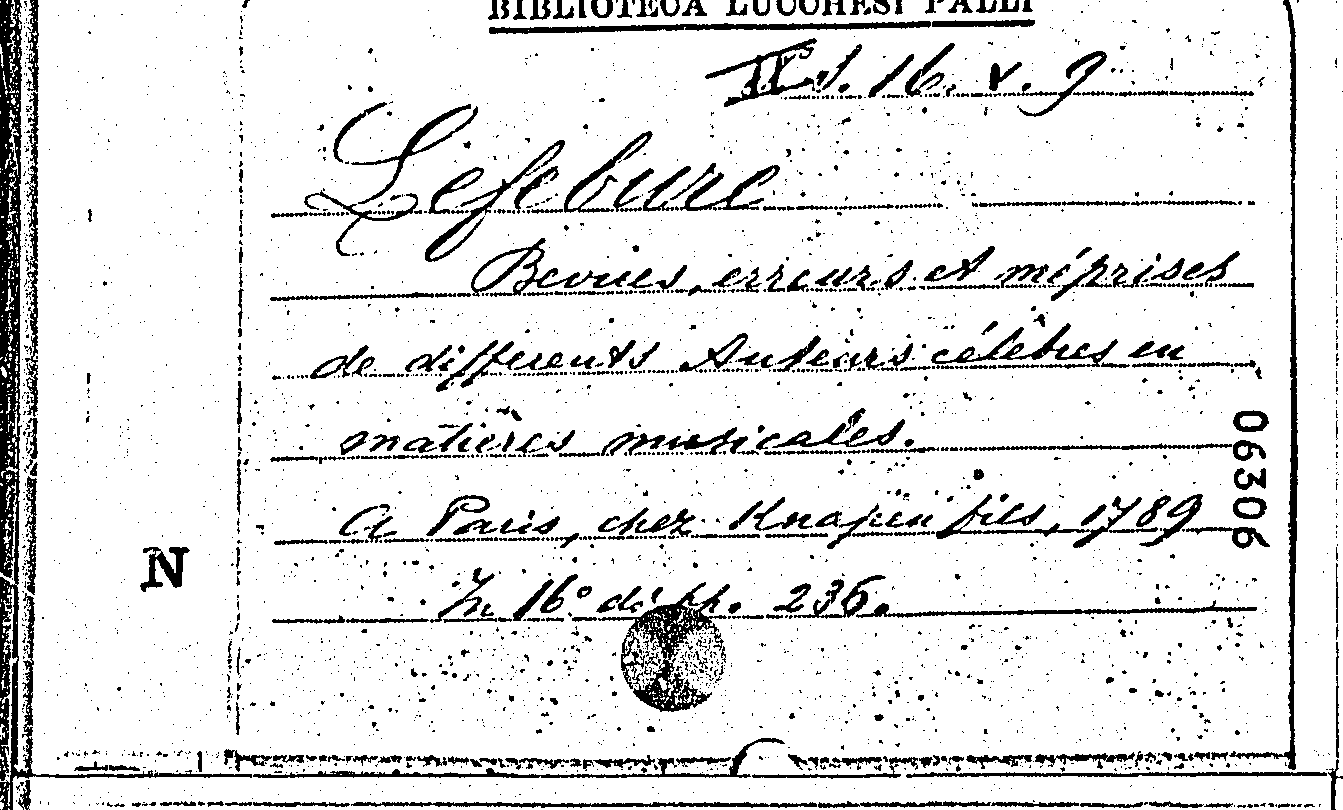 BIBLIOTECA LUCCHESI PALLI
16. v. 9
Lefebure
Bevues, erreurs et méprises
de differents Auteurs célèbres en
matières musicales.
A Paris, chez Knapen fils, 1789
In 16° di pp. 236.
06306
N